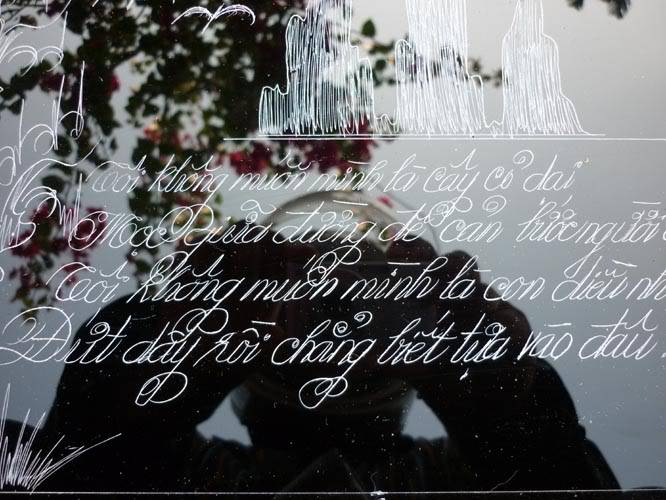 Tôi không muốn mình là cây cỏ dại
Mọc giữa đường để cản bước người
Tôi không muốn mình là con diều nh
Đứt dây rồi chẳng biết tựa vào đâu